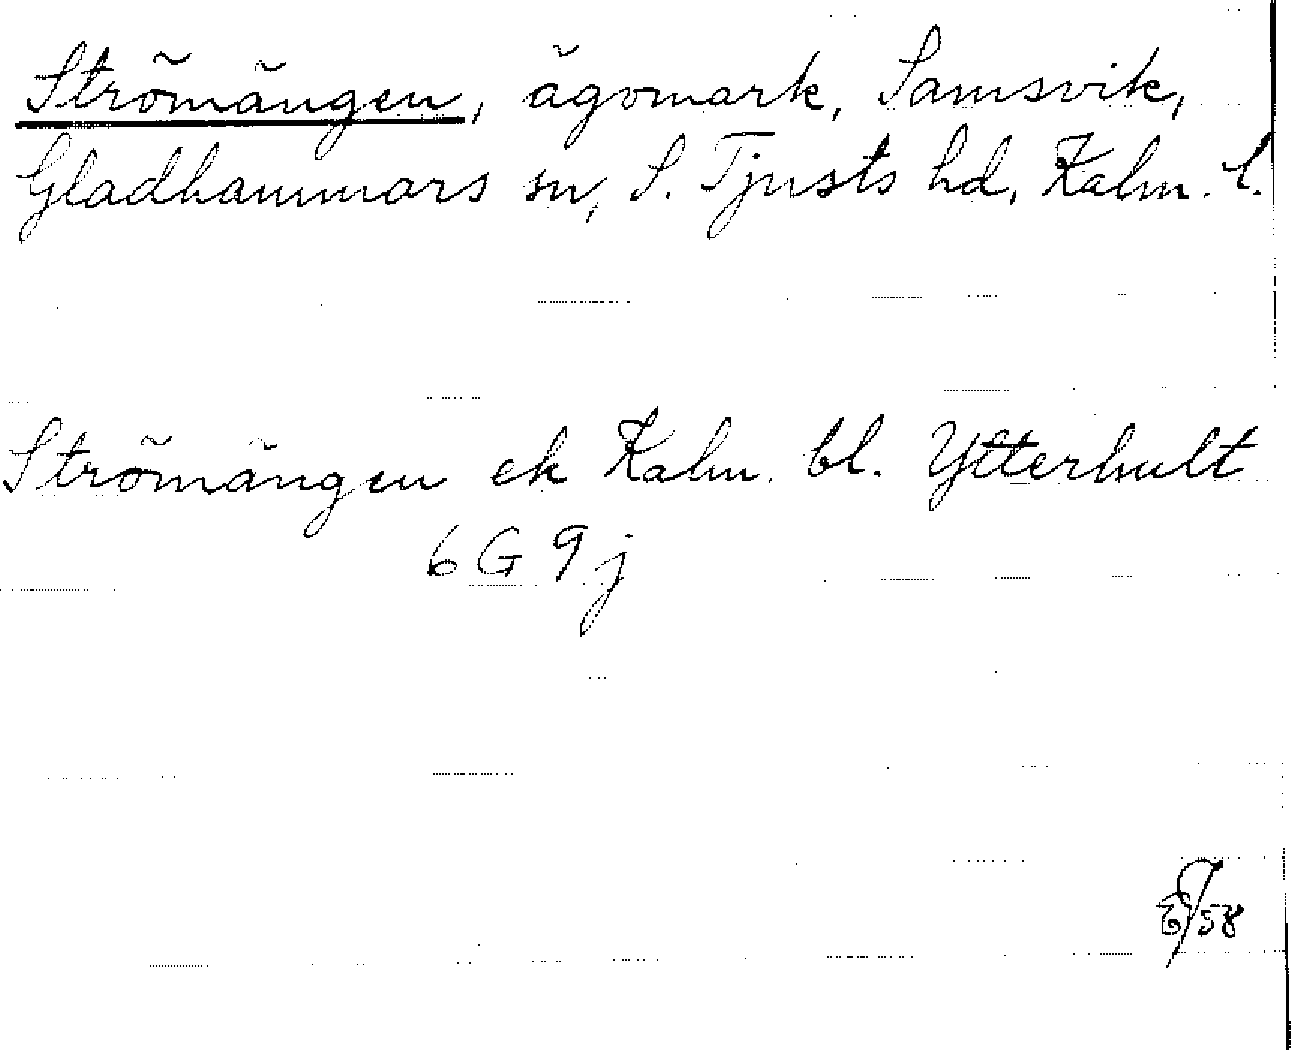 Strömängen, ägomark, Samsvik,
Gladhammars sn, S. Tjusts hd, Kalm. l.
Strömängen ek Kalm. bl. Ytterhult
6 G 9 j
/58